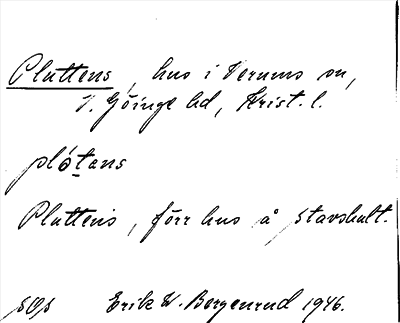 Pluttens, hus i Verums sn,
V. Göinge hd, Krist. l.
plótans
Pluttens, förr hus å Stavshult.
SOS Erik W. Bergenrud 1946.